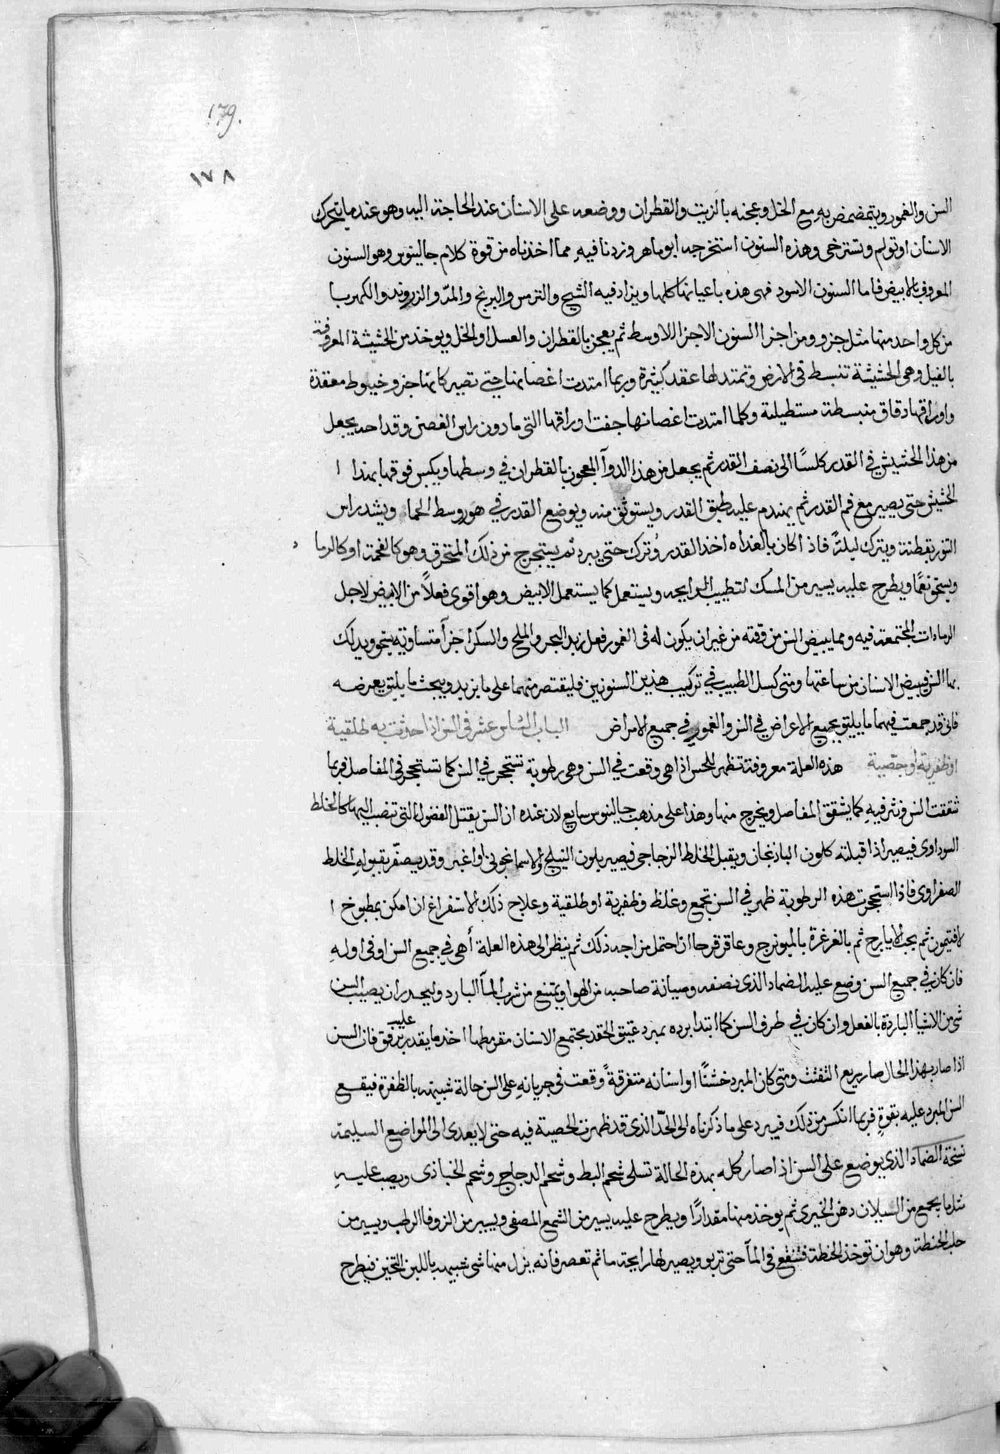 179.
١٧٨
السن والغمور ويتمضمض به مع الخل وعجنه بالزيت والقطران ووضعه على الاسنان عند الحاجة اليه وهو عند ما يتحرك
الاسنان او تولم وتسترخى وهذه السنون استخرجه ابو ماهر وزدنا فيه مما اخذناه من قوة كلام جالينوس وهو السنون
المعروف بالابيض فاما السنون الاسود فهى هذه باعيانها كلها ويزاد فيه الشيح والترمس والبرنج والمر والزروند والكهربا
من كل واحد منها مثل جزو ومن اجزا السنون الاجزا الاوسط ثم يعجن بالقطران والعسل او الخل ويوخذ من الحشيشة المعروفة
بالفيل وهى الحشيشة تنبسط فى الارض وتمتد لها عقد كثيرة وربما امتدت اغصانها حتى تصير كانها جزو خيوط معقدة
واوراقها دقاق منبسطة مستطيلة وكلما امتدت اغصانها جفت اوراقها التى ما دون راس الغصن وقد احد يجعل
من هذا الحشيش فى القدر كلسًا الى نصف القدر ثم يجعل من هذا الدوآ المعجون بالقطران فى وسطها ويكبس فوقها بهذا ا
لحشيش حتى يصير مع فم القدر ثم يهندم عليه طبق القدر ويستوثق منه ويوضع القدر فى هور وسط الحما ويشد راس
التور بقطنة ويترك ليلةً فاذا كان بالغداه اخذ القدر وترك حتى يبرد ثم يستخرج من ذلك المتحرق وهو كالفحمة او كالرما د
ويسحق نعمًا ويطرح عليه يسير من المسك لتطييب الرايحه ويستعمل كما يستعمل الابيض وهو اقوى فعلاً من الابيض لاجل
الرمادات المجتمعة فيه ومما يبيض السن من وقته من غير ان يكون له فى الغمور فعل زبد البحر والملح والسكر اجزآ متساوية يسحق ويدلك
بها السن فيبيض الاسنان من ساعتها ومتى كسل الطبيب فى تركيب هذين السنونين فليقتصر منهما على ما يريد ويبحث ما يليق بعرضه
فانى قد جمعت فيهما ما يليق بجميع الاعراض فى السن والغمور فى جميع الامراض الباب السادس عشر فى السن اذا حدثت به طلقية
او ظفرية او حصية هذه العلة معروفة تظهر للحس اذا هى وقعت فى السن وهى رطوبة تتحجر فى السن كما تستحجر فى المفاصل فربما
شققت السن ونثر فيه كما يشقق المفاصل ويخرج منها وهذا على مذهب جالينوس سايغ لان عنده ان السن يقتبل الفضول التى تنصب اليها كالخلط
السوداوى فيصير اذا قبلته كلون الباذنجان ويقبل الخلط الزجاجى فيصير بلون النيلج والاسمانجونى او اغبر وقد يصفّر بقبوله الخلط
الصفراوى فاذا استحجرت هذه الرطوبة ظهر فى السن تجمع وغلظ وظفرية او طلقية وعلاج ذلك الاستفراغ ان امكن بمطبوخ ا
لافتيمون ثم بحب الايارج ثم بالغرغرة بالميوبزج وعاقرقرحا ان احتمل مزاجه ذلك ثم ينظر الى هذه العلة أهى فى جميع السن او فى اوله
فان كان فى جميع السن وضع عليه الضماد الذى نصفه وصيانة صاحبه من الهوا ويمتنع من شرب المآ البارد وليحذر ان يصيب السن
شى من الاشيا الباردة بالفعل وان كان فى طرف السن كما ابتدا برده بمبرد عتيق الحقد مجتمع الاسنان مقربطها اخذ ما يقدر عليه برفق فان السن
اذا صار بهذا الحال صار سريع التفتت ومتى كان المبرد خشنًا او اسنانه متفرقةً وقعت فى جريانه على السن حالة شبيهه بالظفرة فيقع
السن المبرد عليه بقوةٍ فربما انكسر من ذلك فيبرد على ما ذكرناه الى الحدّ الذى قد ظهرت الحصية فيه حتى لا يعدى الى المواضع السليمة
نسخة الضماد الذى يوضع على السن اذا صار كله بهذه الحالة تسلى شحم البط وشحم الدجاج وشحم الخبازى ويصب عليه
مثل ما يجمع من السيلان دهن الخيرى ثم يوخذ منها مقدارًا ويطرح عليه يسير من الشمع المصفى ويسير من الزوفا الرطب ويسير من
حلب الحنطة وهو ان توخذ الحنطة فتنقع فى المآ حتى تربو ويصير لها رايحة ما ثم تعصر فانه ينزل منها شى شبيه باللبن الثخين فيطرح